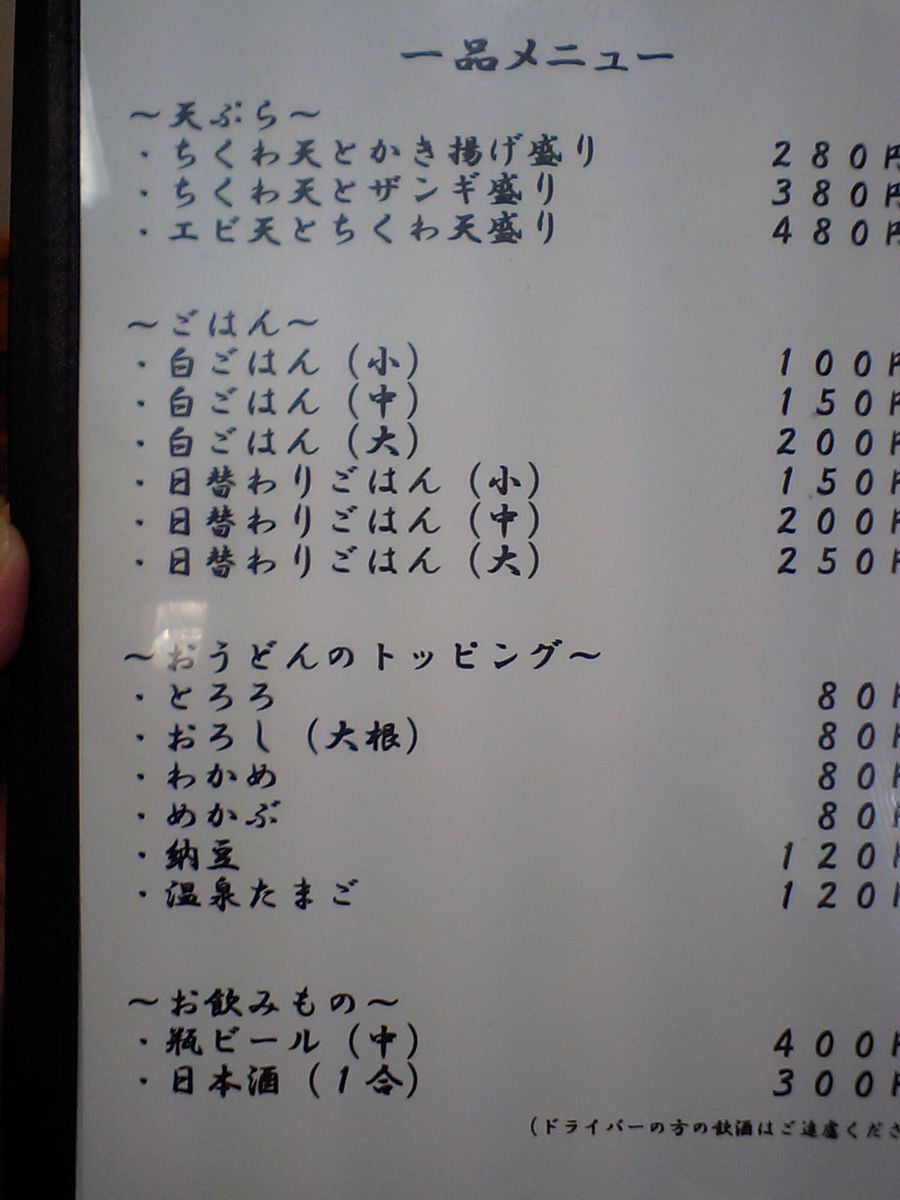 一品メニュー
～天ぷら～
・ちくわ天とかき揚げ盛り 280円
・ちくわ天とザンギ盛り 380円
・エビ天とちくわ天盛り 480円
～ごはん～
・白ごはん(小) 100円
・白ごはん(中) 150円
・白ごはん(大) 200円
・日替わりごはん(小) 150円
・日替わりごはん(中) 200円
・日替わりごはん(大) 250円
～おうどんのトッピング～
・とろろ 80円
・おろし(大根) 80円
・わかめ 80円
・めかぶ 80円
・納豆 120円
・温泉たまご 120円
～お飲みもの～
・瓶ビール(中) 400円
・日本酒(1合) 300円
(ドライバーの方の飲酒はご遠慮くださ